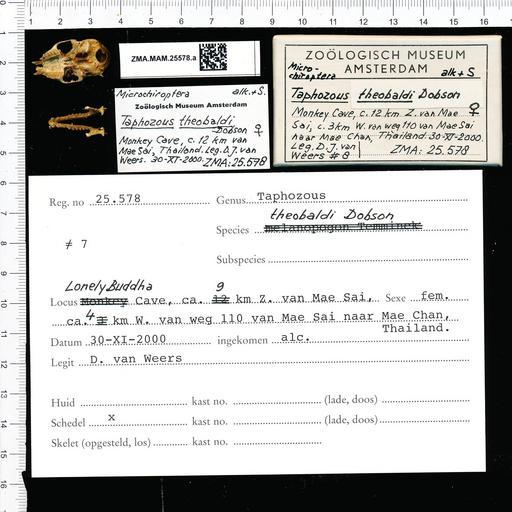 ZMA.MAM.25578.a
Microchiroptera alk.+S.
Zoölogisch Museum Amsterdam
Taphozous theobaldi
Dobson ♀
Monkey Cave, c. 12 km van
Mae Sai, Thailand. Leg. D.J. van
Weers. 30-XI-2000. ZMA: 25.578
ZOÖLOGISCH MUSEUM
AMSTERDAM
Micro-
chiroptera alk+S
Taphozous theobaldi Dobson
Monkey Cave, c. 12 km Z. van Mae ♀
Sai, c. 3km W. van weg 110 van Mae Sai
naar Mae Chan, Thailand. 30-XI-2000.
Leg. D.J. van
Weers # 8 ZMA: 25.578
Reg. no 25.578 Genus Taphozous
theobaldi Dobson
≠ 7 Species melanopogon Temminck
Subspecies
Lonely Buddha 9
Locus Monkey Cave, ca. 12 km Z. van Mae Sai, Sexe fem.
ca. 4 km W. van weg 110 van Mae Sai naar Mae Chan,
Thailand.
Datum 30-XI-2000 ingekomen alc.
Legit D. van Weers
Huid kast no. (lade, doos)
Schedel x kast no. (lade, doos)
Skelet (opgesteld, los) kast no.